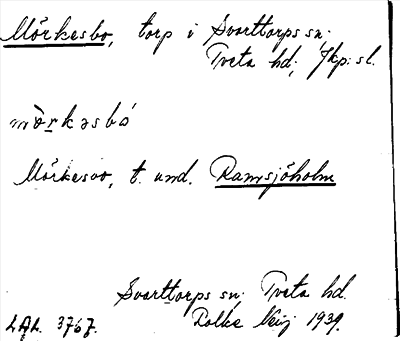 Mörkesbo, torp i Svarttorps sn;
Tveta hd; Jkp: sl.
mö̀rkəsbó
Mörkesvo, t. und. Ramsjöholm
Svarttorps sn; Tveta hd.
LAL. 3767. 1939.